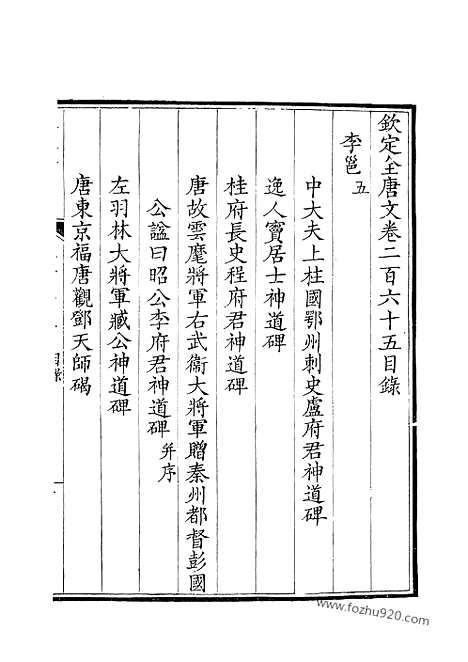 欽定全唐文卷二百六十五目錄
李邕五
中大夫上柱國鄂州刺史盧府君神道碑
逸人竇居士神道碑
桂府長史程府君神道碑
唐故雲麾將軍右武衞大將軍贈秦州都督彭國
公諡曰昭公李府君神道碑并序
左羽林大將軍臧公神道碑
唐東京福唐觀鄧天師碣
目錄
www.fozhu920.com